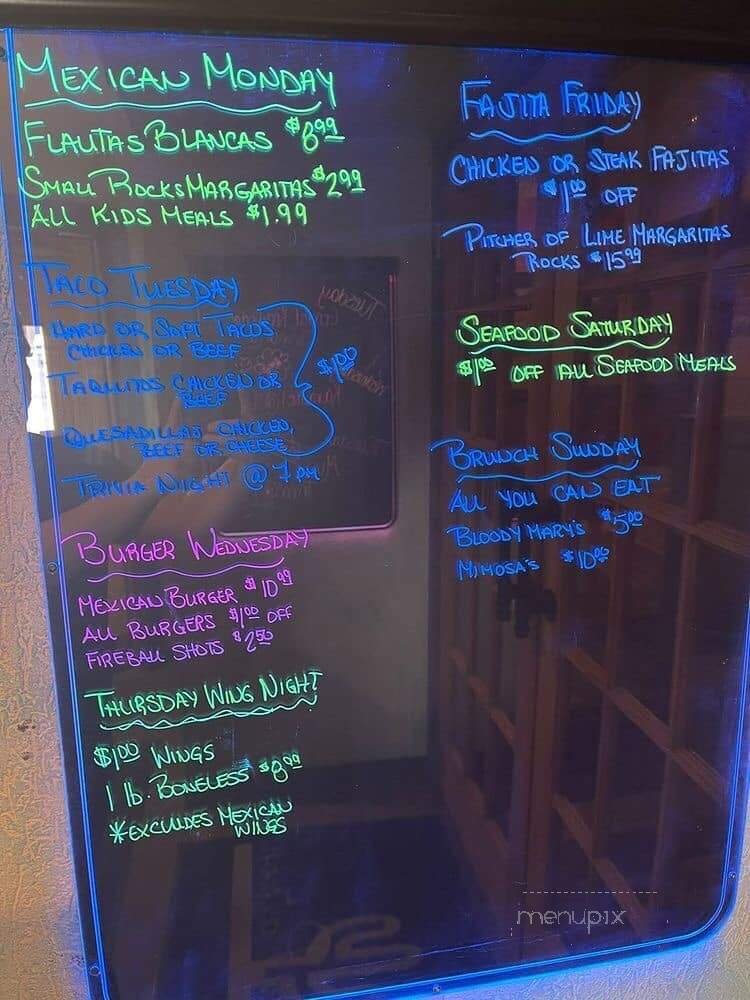 MEXICAN MONDAY
FLAUTAS BLANCAS $8.99
SMALL ROCKS MARGARITAS $2.99
ALL KIDS MEALS $1.99
TACO TUESDAY
HARD OR SOFT TACOS
CHICKEN OR BEEF
TAQUITOS CHICKEN OR
BEEF
$1.00
QUESADILLAS CHICKEN,
BEEF OR CHEESE
TRIVIA NIGHT @ 7 PM
BURGER WEDNESDAY
MEXICAN BURGER $10.99
ALL BURGERS $1.00 OFF
FIREBALL SHOTS $2.50
THURSDAY WING NIGHT
$1.00 WINGS
1 lb. BONELESS $8.99
*EXCLUDES MEXICAN
WINGS
FAJITA FRIDAY
CHICKEN OR STEAK FAJITAS
$1.00 OFF
PITCHER OF LIME MARGARITAS
ROCKS $15.99
SEAFOOD SATURDAY
$1.00 OFF ALL SEAFOOD MEALS
BRUNCH SUNDAY
ALL YOU CAN EAT
BLOODY MARY'S $5.00
MIMOSA'S $10.00
menupix